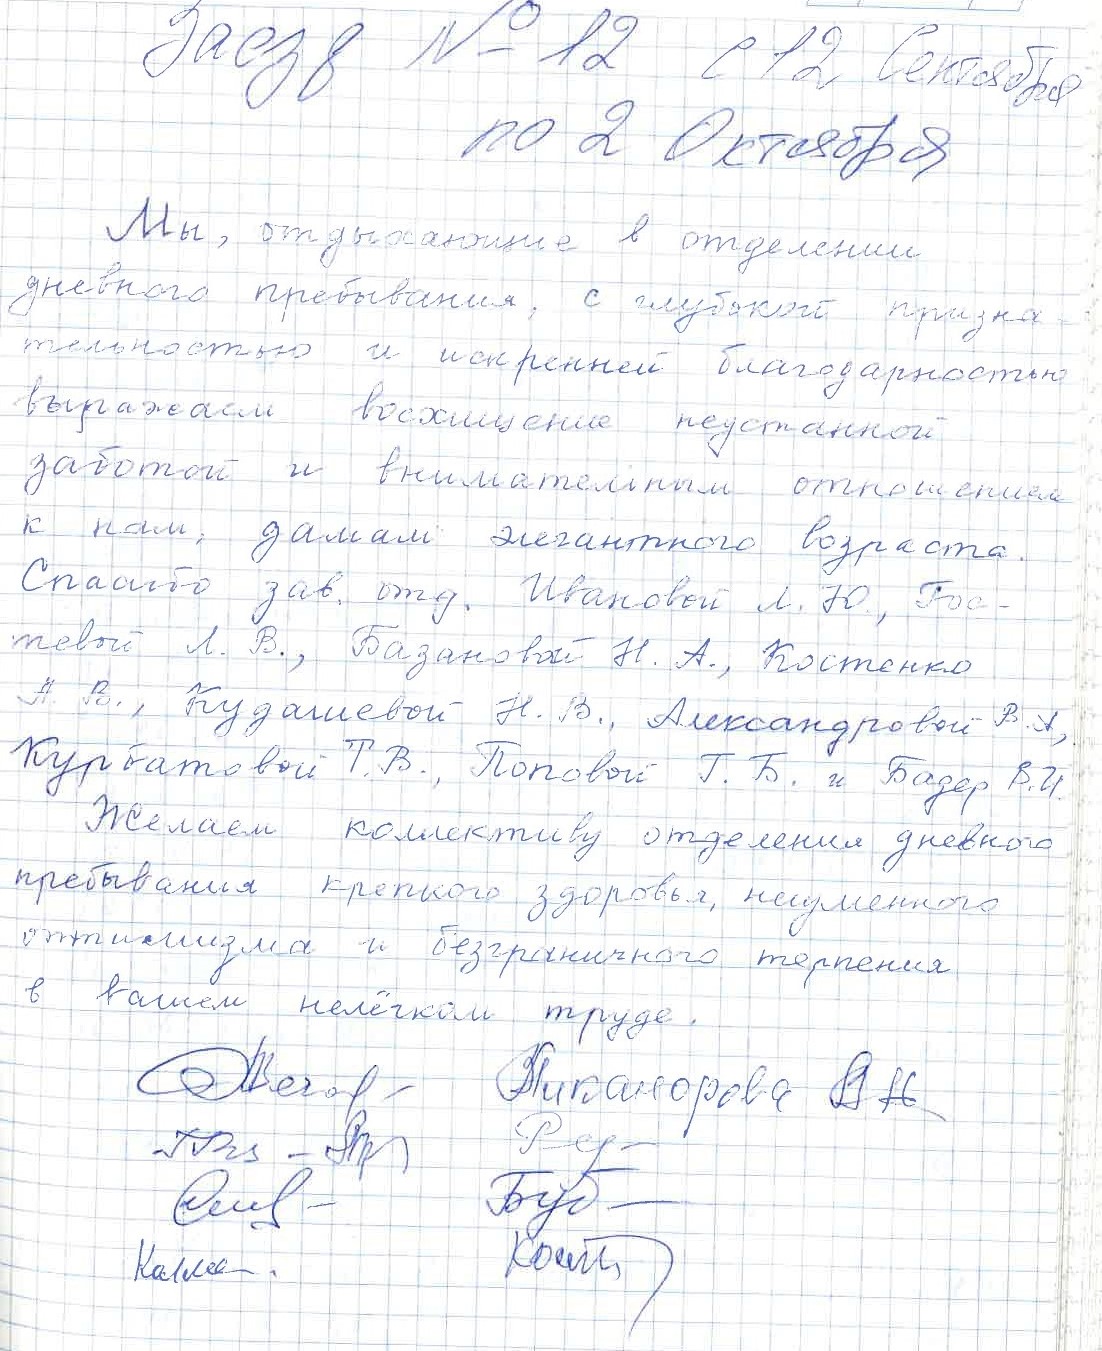 Заезд № 12 с 12 Сентября
по 2 Октября
Мы, отдыхающие в отделении
дневного пребывания, с глубокой призна-
тельностью и искренней благодарностью
выражаем восхищение неустанной
заботой и внимательным отношением
к нам, дамам элегантного возраста.
Спасибо зав. отд. Ивановой Л. Ю., Гос-
тевой Л. В., Базановой Н. А., Костенко
А. В., Кудашевой Н. В., Александровой В. А,
Курбатовой Т. В., Поповой Г. Б. и Бадер В. И.
Желаем коллективу отделения дневного
пребывания крепкого здоровья, неуменного
оптимизма и безграничного терпения
в вашем нелёгком труде.
Никанорова В Н